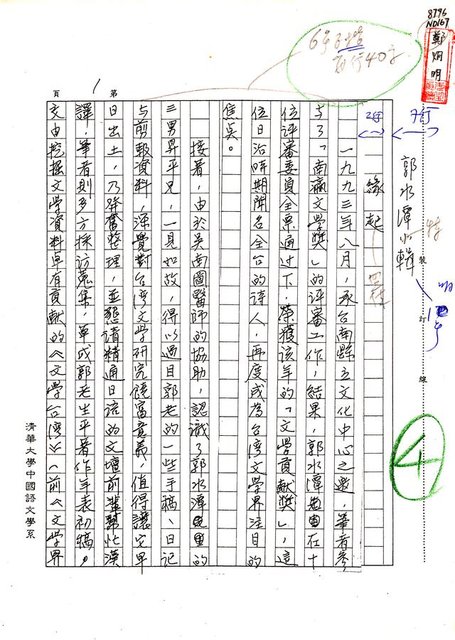 8796
ND167
鄭炯明
6号3楷
每行40字
郭水潭小輯
特
裝
訂
線
4
緣起
一九九三年八月，承台南縣立文化中心之邀，筆者參
与了「南瀛文学獎」的評審工作，結果，郭水潭先生由在十
位評審委員全票通過下，榮獲該年的「文学貢献獎」，這
位日治時期聞名全台的詩人，再度成為台灣文学界注目的
焦点。
接着，由於吳南圖醫師的協助，認識了郭水潭先生的
三男昇平兄，一見如故，得以過目郭老的一些手稿、日记
与剪報資料，深覺對台灣文学研究饒富意義，值得讓它早
日出土，乃除奮整理，並懇請精通日語的文壇前輩幫忙漢
譯，筆者則多方採訪蒐集，草成郭老生平著作年表初稿。
交由挖掘文学資料卓有貢献的《文学台灣》（前《文学界
第 1 頁
清華大學中國語文學系